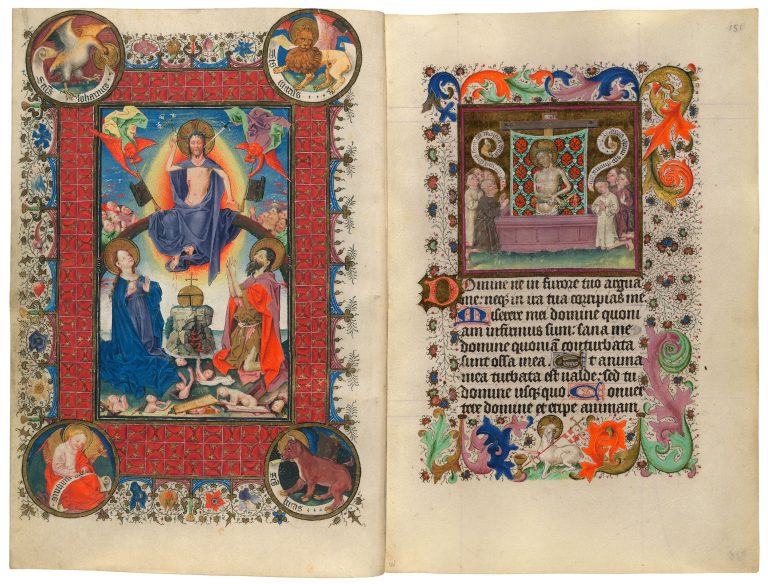 iohannes
lucas
151
Domine ne in furore tuo argua
me: neqz in ira tua corripias me
Miserere mei domine quoni
am infirmus sum: sana me
domine quoniā conturbata
sunt ossa mea. Et anima
mea turbata est valde: sed tu
domine usqz quo Conuer
tere domine et eripe animam